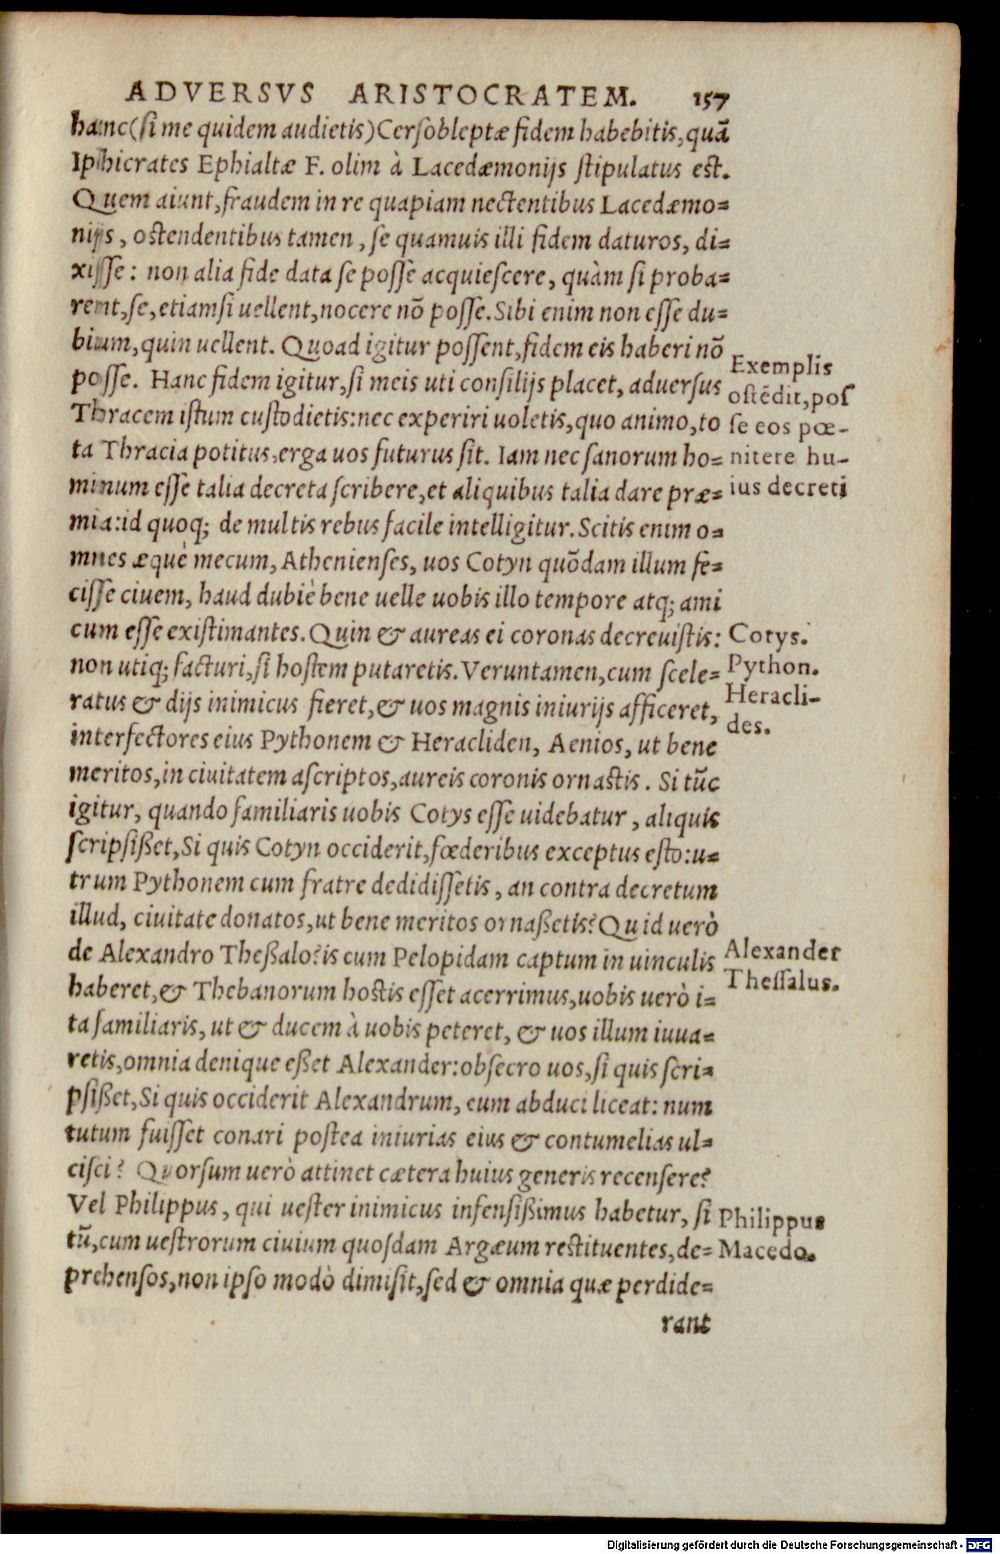 ADVERSVS ARISTOCRATEM. 157
hanc(si me quidem audietis)Cersobleptæ fidem habebitis, quã
Iphicrates Ephialtæ F. olim à Lacedæmonijs stipulatus est.
Quem aiunt, fraudem in re quapiam nectentibus Lacedæmo=
nijs, ostendentibus tamen, se quamuis illi fidem daturos, di=
xisse: non alia fide data se posse acquiescere, quàm si proba=
rent, se, etiamsi uellent, nocere nõ posse. Sibi enim non esse du=
bium, quin uellent. Quoad igitur possent, fidem eis haberi nõ
posse. Hanc fidem igitur, si meis uti consilijs placet, aduersus
Thracem istum custodietis: nec experiri uoletis, quo animo, to
ta Thracia potitus, erga uos futurus sit. Iam nec sanorum ho=
minum esse talia decreta scribere, et aliquibus talia dare præ=
mia: id quoq; de multis rebus facile intelligitur. Scitis enim o=
mnes æquè mecum, Athenienses, uos Cotyn quõdam illum fe=
cisse ciuem, haud dubiè bene uelle uobis illo tempore atq; ami
cum esse existimantes. Quin & aureas ei coronas decreuistis:
non utiq; facturi, si hostem putaretis. Veruntamen, cum scele=
ratus & dijs inimicus fieret, & uos magnis iniurijs afficeret,
interfectores eius Pythonem & Heracliden, Aenios, ut bene
meritos, in ciuitatem ascriptos, aureis coronis ornastis. Si tũc
igitur, quando familiaris uobis Cotys esse uidebatur, aliquis
scripsißet, Si quis Cotyn occiderit, fœderibus exceptus esto: u=
trum Pythonem cum fratre dedidissetis, an contra decretum
illud, ciuitate donatos, ut bene meritos ornaßetis? Quid uerò
de Alexandro Theßalo? is cum Pelopidam captum in uinculis
haberet, & Thebanorum hostis esset acerrimus, uobis uerò i=
ta familiaris, ut & ducem à uobis peteret, & uos illum iuua=
retis, omnia denique eßet Alexander: obsecro uos, si quis scri=
psißet, Si quis occiderit Alexandrum, eum abduci liceat: num
tutum fuisset conari postea iniurias eius & contumelias ul=
cisci? Quorsum uerò attinet cætera huius generis recensere?
Vel Philippus, qui uester inimicus infensißimus habetur, si
tũ, cum uestrorum ciuium quosdam Argæum restituentes, de=
prehensos, non ipso modò dimisit, sed & omnia quæ perdide=
rant
Exemplis
ostẽdit, pos
se eos pœ-
nitere hu-
ius decreti
Cotys.
Python.
Heracli-
des.
Alexander
Thessalus.
Philippus
Macedo.
Digitalisierung gefördert durch die Deutsche Forschungsgemeinschaft - DFG